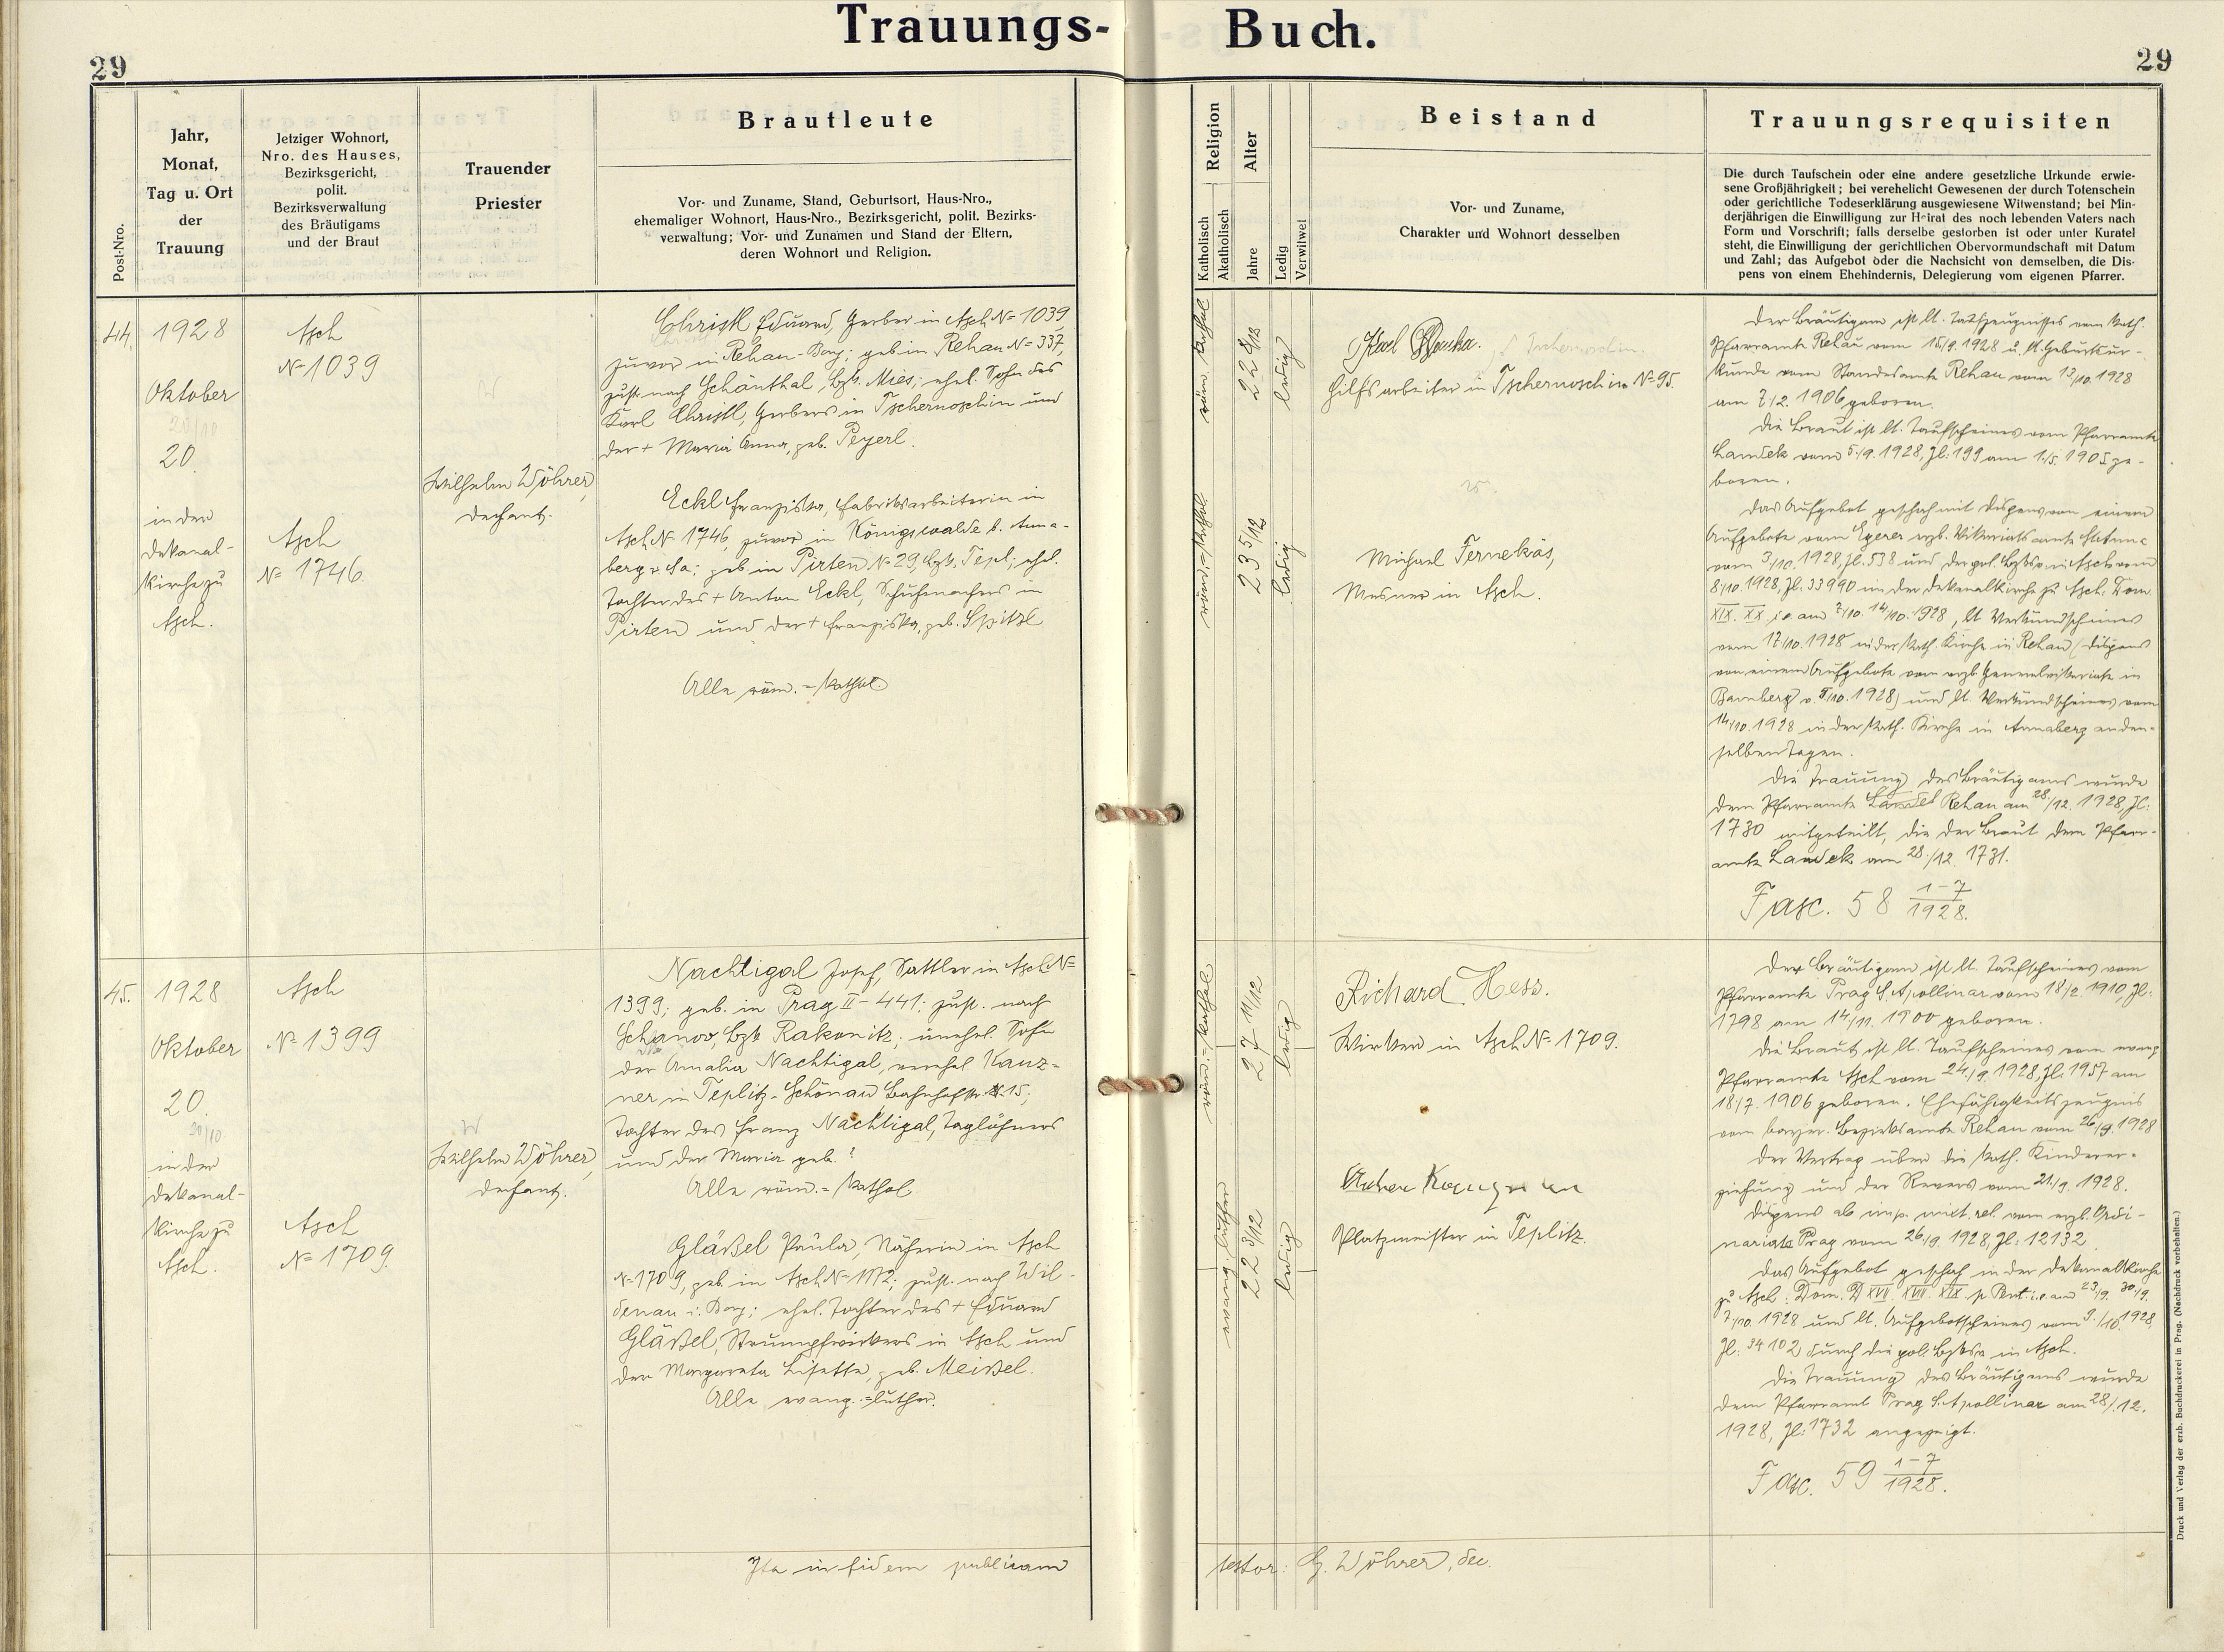 Trauungs- Buch.
29
29
Post-Nro.
Jahr,
Monat,
Tag u. Ort
der
Trauung
Jetziger Wohnort,
Nro. des Hauses,
Bezirksgericht,
polit.
Bezirksverwaltung
des Bräutigams
und der Braut
Trauender
Priester
Brautleute
Vor- und Zuname, Stand, Geburtsort, Haus-Nro.,
ehemaliger Wohnort, Haus-Nro., Bezirksgericht, polit. Bezirks-
verwaltung; Vor- und Zunamen und Stand der Eltern,
deren Wohnort und Religion.
Religion
Katholisch
Akatholisch
Alter
Jahre
Ledig
Verwitwet
Beistand
Vor- und Zuname,
Charakter und Wohnort desselben
Trauungsrequisiten
Die durch Taufschein oder eine andere gesetzliche Urkunde erwie-
sene Großjährigkeit; bei verehelicht Gewesenen der durch Totenschein
oder gerichtliche Todeserklärung ausgewiesene Witwenstand; bei Min-
derjährigen die Einwilligung zur Heirat des noch lebenden Vaters nach
Form und Vorschrift; falls derselbe gestorben ist oder unter Kuratel
steht, die Einwilligung der gerichtlichen Obervormundschaft mit Datum
und Zahl; das Aufgebot oder die Nachsicht von demselben, die Dis-
pens von einem Ehehindernis, Delegierung vom eigenen Pfarrer.
44.
1928
Oktober
20/10
20.
in der
Dekanal-
kirche zu
Asch.
Asch
N= 1039
Asch
N= 1746.
Wilhelm Wöhrer,
Dechant.
Christl Eduard, Gerber in Asch N= 1039
zuvor in Rehau-Bay; geb. in Rehau N= 337,
zust. nach Schönthal, Bzk. Mies; ehel. Sohn des
Karl Christl, Gerbers in Tschernoschin und
der + Maria Anna, geb. Peyerl.
Eckl Franziska, Fabriksarbeiterin in
Asch N= 1746, zuvor in Königswalde b. Anna-
berg i. Sa; geb. in Pirten N= 29, Bzk. Tepl; ehel.
Tochter des + Anton Eckl, Schuhmachers in
Pirten und der + Franziska, geb. Spitzl
Alle röm.=kathol.
röm. kathol
22 8/12
ledig
röm.=kathol.
23 5/12
ledig
Karl
Hilfsarbeiter in Tschernoschin N= 95.
Michael Ferneküs,
Mesner in Asch.
Der Bräutigam ist lt. Taufzeugnisses vom kath.
Pfarramte Rehau vom 15/9. 1928 u. lt. Geburtsur-
kunde vom Standesamte Rehau vom 13/10. 1928
am 7/2. 1906 geboren.
Die Braut ist lt. Taufscheines vom Pfarramte
Landek vom 5./9. 1928, Zl: 199 am 1./5. 1905 ge-
boren.
Das Aufgebot geschah mit Dispens von einem
Aufgebote vom Egerer erzb. Vikariatsamte
vom 3/10. 1928, Zl. 538 und der pol. Bzksv. in Asch vom
8/10. 1928, Zl. 33990 in der Dekanalkirche zu Asch: Dom
XIX. XX. i.e. am 7/10. 14/10. 1928, lt. Verkündscheines
vom 17/10. 1928 in der kath. Kirche in Rehau (Dispens
von einem Aufgebote vom erzb. Generalvikariate in
Bamberg v. 5/10. 1928) und lt. Verkündscheines vom
14/10. 1928 in der kath. Kirche in Annaberg an den-
selben Tagen.
Die Trauung des Bräutigams wurde
dem Pfarramte Landek Rehau am 28./12. 1928, Zl:
1730 mitgeteilt, die der Braut dem Pfarr-
amte Landek am 28./12. 1731.
Fasc. 58 1-7/1928.
45.
1928
Oktober
20.
20/10
in der
Dekanal-
kirche zu
Asch.
Asch
N= 1399
Asch
N= 1709.
Wilhelm Wöhrer,
Dechant.
Nachtigal Josef, Sattler in Asch N=
1399; geb. in Prag II - 441; zust. nach
Schanov, Bzk. Rakonitz; unehel. Sohn
der Amalia Nachtigal, verehel. Kanz-
ner in Teplitz-Schönau Bahnhofstr. N. 15;
Tochter des Franz Nachtigal, Taglöhners
und der Maria geb. ?
Alle röm.=kathol
Gläßel Paula, Näherin in Asch
N= 1709, geb. in Asch N= 1172; zust. nach Wil-
denau i. Bay; ehel. Tochter des + Eduard
Gläßel, Strumpfwirkers in Asch und
der Margareta Lisette, geb. Meißel.
Alle evang.=luther.
röm.=kathol.
27 11/12
ledig
evang. luther
22 3/12
ledig
Richard Hess.
Wirker in Asch N= 1709.
Platzmeister in Teplitz.
Der Bräutigam ist lt. Taufscheines vom
Pfarramte Prag S. Apollinar vom 18/2. 1910, Zl:
1798 am 14/11. 1900 geboren.
Die Braut ist lt. Taufscheines vom evang
Pfarramte Asch vom 24./9. 1928, Zl: 1957 am
18/7. 1906 geboren. Ehefähigkeitszeugnis
vom bayer. Bezirksamte Rehau vom 26/9. 1928
Der Vertrag über die kath. Kinderer-
ziehung und der Revers vom 21./9. 1928.
Dispens ab imp. mixt. rel. vom erzb. Ordi-
nariate Prag vom 26/9. 1928, Zl: 12132
Das Aufgebot geschah in der Dekanalkirche
zu Asch: Dom. XVII. XVIII. XIX. p. Pent. i.e. am 23/9. 30/9.
7/10. 1928 und lt. Aufgebotscheines vom 9./10. 1928,
Zl: 34102 durch die pol. Bzksv. in Asch.
Die Trauung des Bräutigams wurde
dem Pfarramt Prag S. Apollinar am 28/.12.
1928, Zl: 1732 angezeigt.
Fasc. 59 1-7/1928.
Ita in fidem publicam
testor: G. Wöhrer, dec.
Druck und Verlag der erzb. Buchdruckerei in Prag. (Nachdruck vorbehalten.)